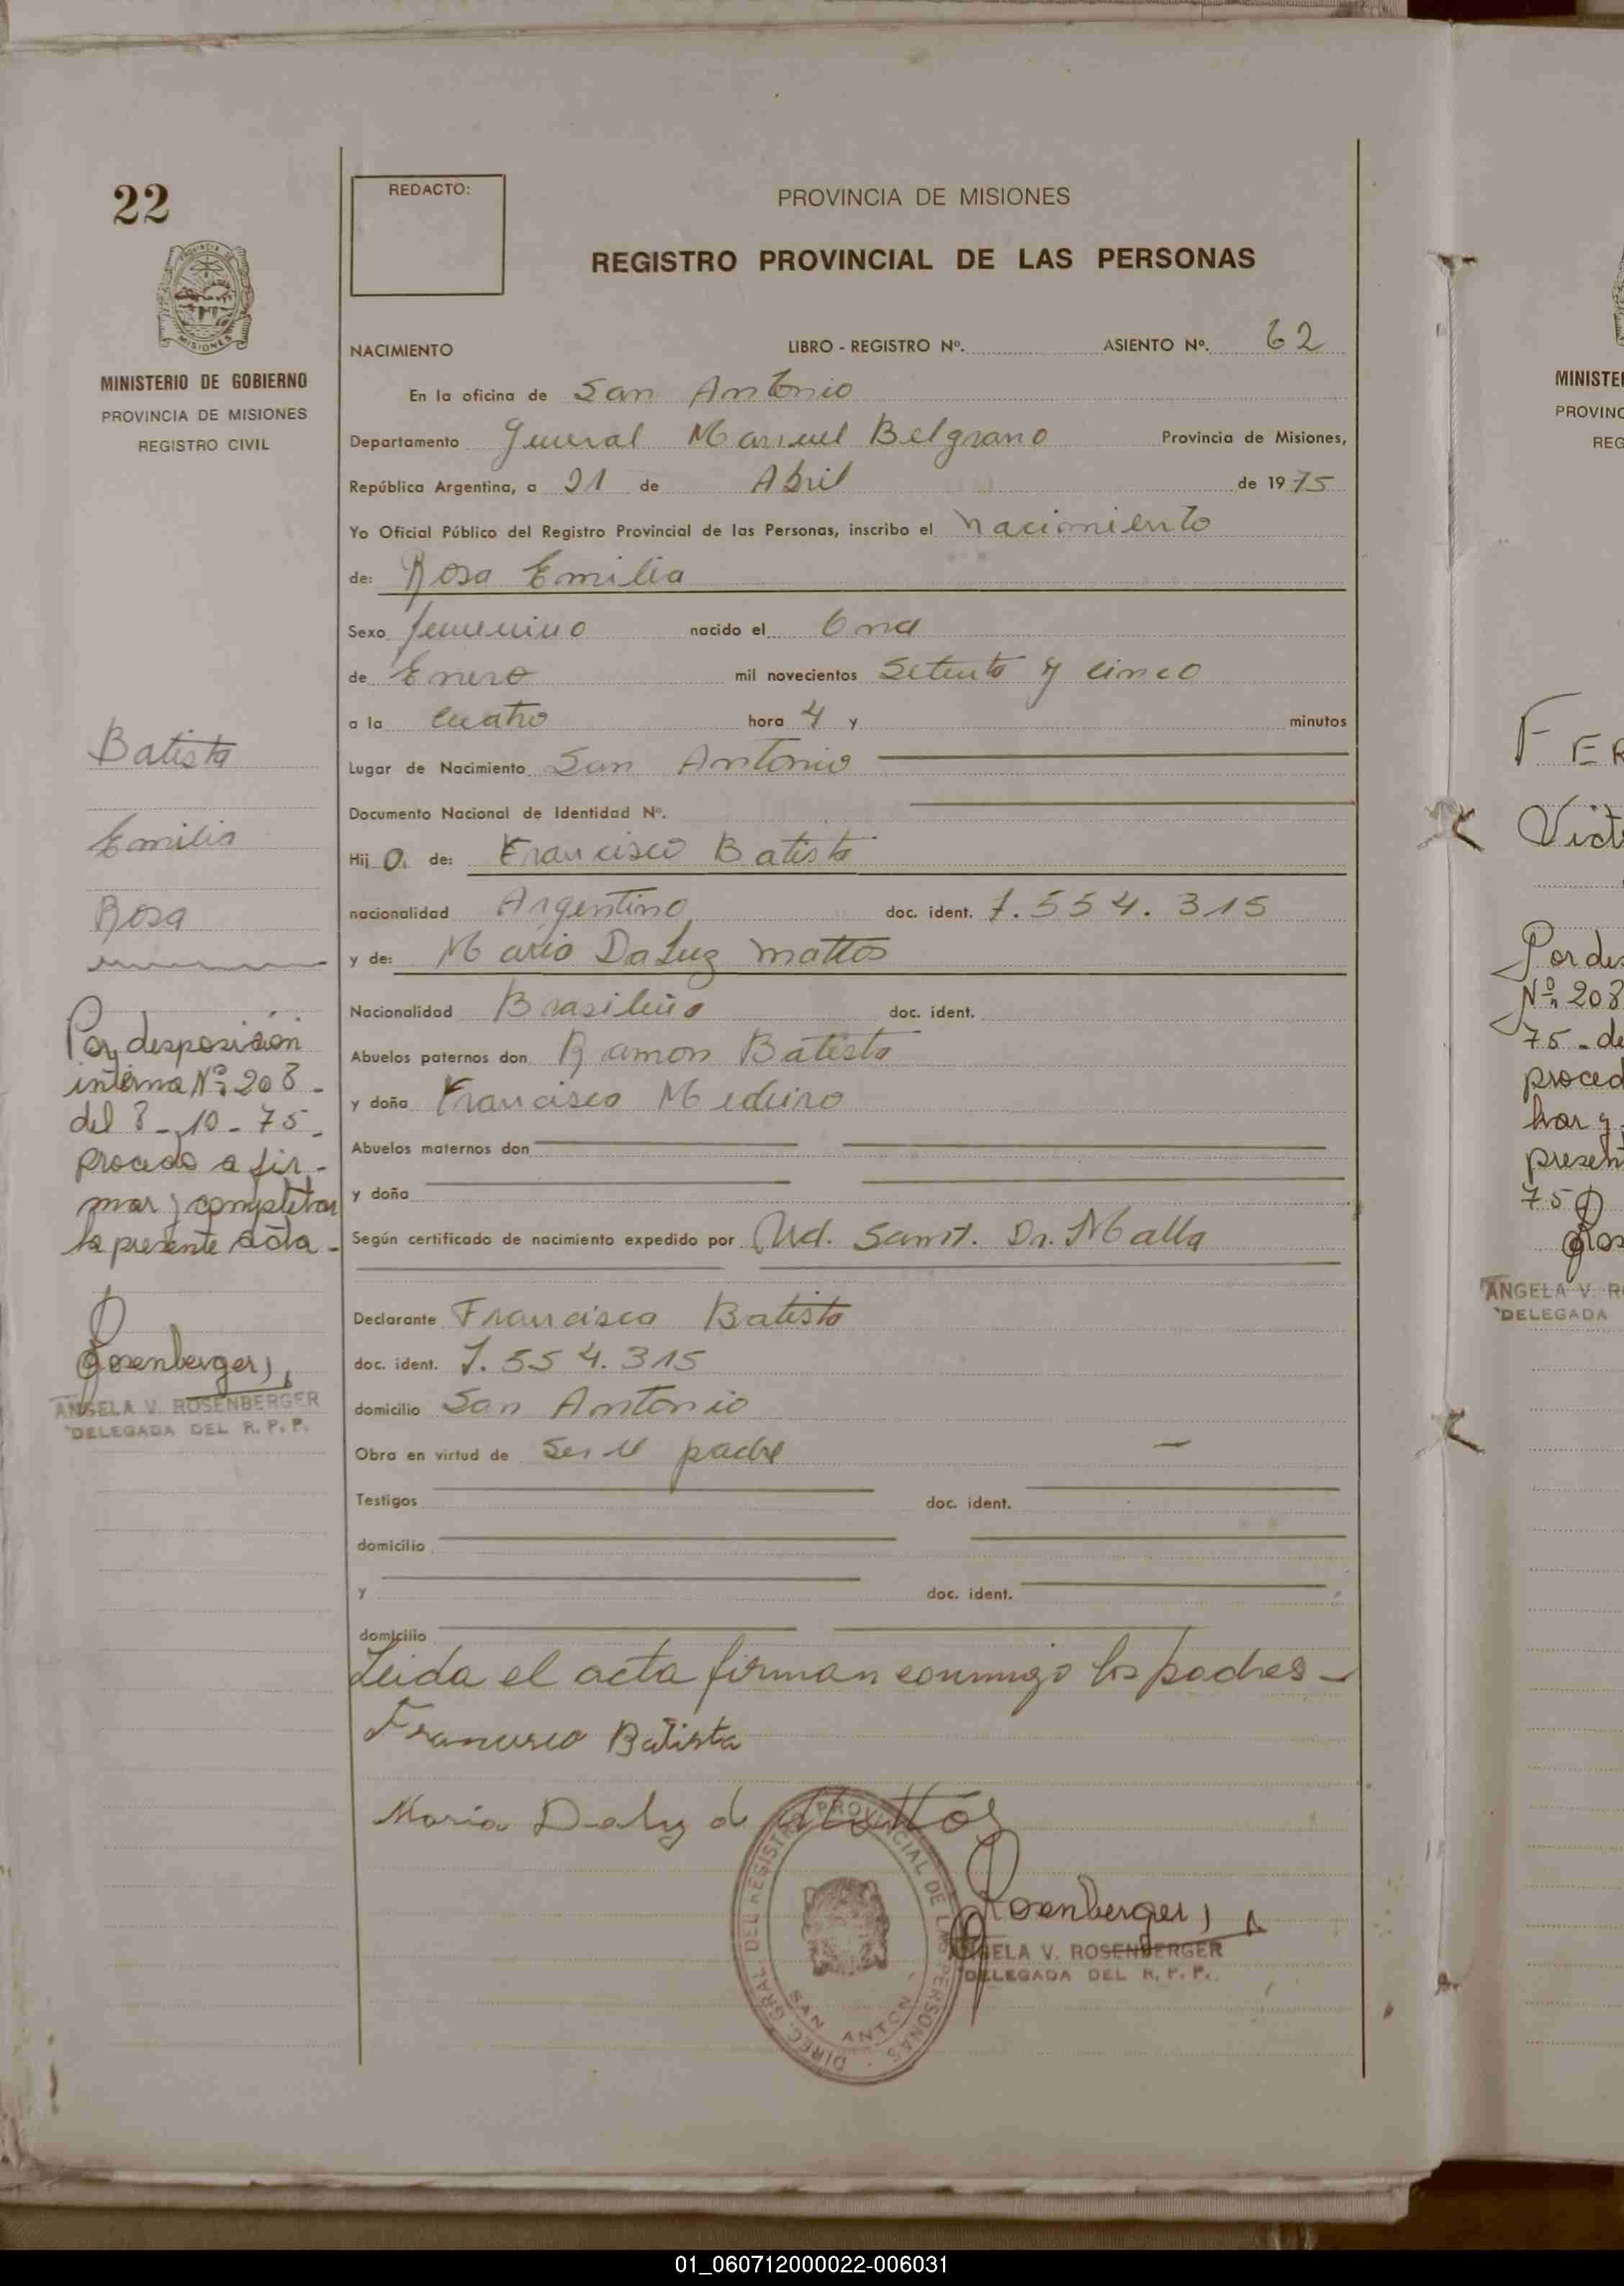 22
PROVINCIA DE
MISIONES
MINISTERIO DE GOBIERNO
PROVINCIA DE MISIONES
REGISTRO CIVIL
Batista
Emilia
Rosa
Por desposición
interna Nº 208 -
del 8 - 10 - 75 -
procedo a fir -
mar y completar
la presente acta -
Rosenberger
ANGELA V. ROSENBERGER
DELEGADA DEL R. P. P.
REDACTO:
PROVINCIA DE MISIONES
REGISTRO PROVINCIAL DE LAS PERSONAS
NACIMIENTO LIBRO - REGISTRO Nº. ASIENTO Nº. 62
En la oficina de San Antonio
Departamento General Manuel Belgrano Provincia de Misiones,
República Argentina, a 21 de Abril de 1975
Yo Oficial Público del Registro Provincial de las Personas, inscribo el Nacimiento
de: Rosa Emilia
Sexo femenino nacido el
de Enero mil novecientos Setenta y cinco
a la cuatro hora 4 y minutos
Lugar de Nacimiento San Antonio
Documento Nacional de Identidad Nº.
Hij a de: Francisco Batista
nacionalidad Argentino doc. ident. 7.554.315
y de: Maria Da Luz mattos
Nacionalidad Brasileña doc. ident.
Abuelos paternos don Ramon Batista
y doña Francisca Medeiro
Abuelos maternos don
y doña
Según certificado de nacimiento expedido por Ud. Sanit. Dr. Malla
Declarante Francisco Batista
doc. ident. 7.554.315
domicilio San Antonio
Obra en virtud de ser el padre
Testigos doc. ident.
domicilio
y doc. ident.
domicilio
Leida el acta firman conmigo los padres -
Francisco Batista
Maria Daluz d Mattos
DIREC. GRAL. DEL REGISTRO PROVINCIAL DE LAS PERSONAS
SAN ANTON
Rosenberger
ANGELA V. ROSENBERGER
DELEGADA DEL R. P. P.
MINISTE
PROVINC
REG
FER
Por des
Nº 208
75 - de
proced
presen
75
Ros
ANGELA V. R
DELEGADA
01_060712000022-006031